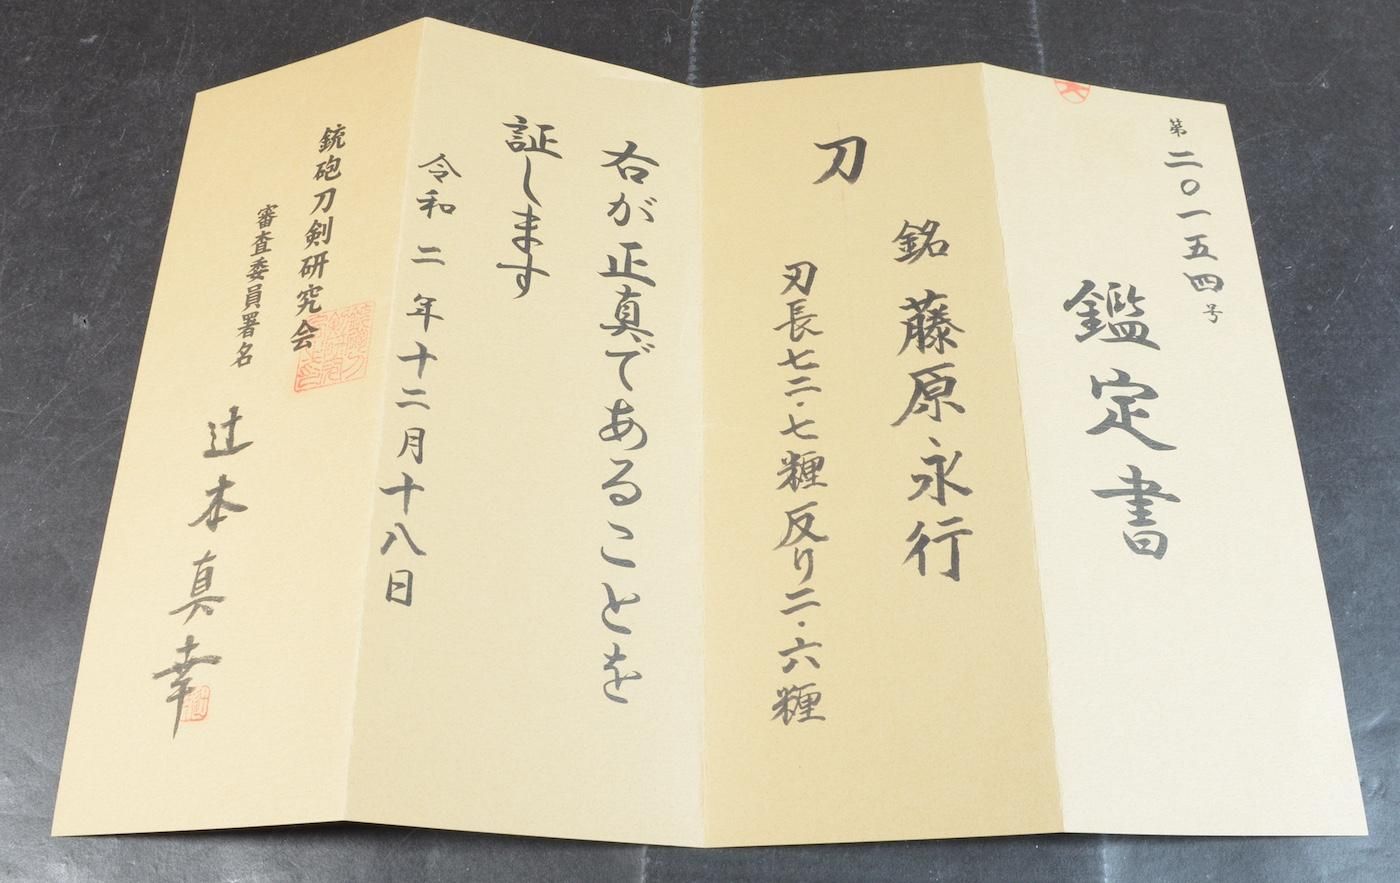 第二〇一五四号
鑑定書
刀
銘 藤原永行
刃長七二・七糎反り二・六糎
右が正真であることを
証します
令和二年十二月十八日
銃砲刀剣研究会
審査委員署名
辻本真幸